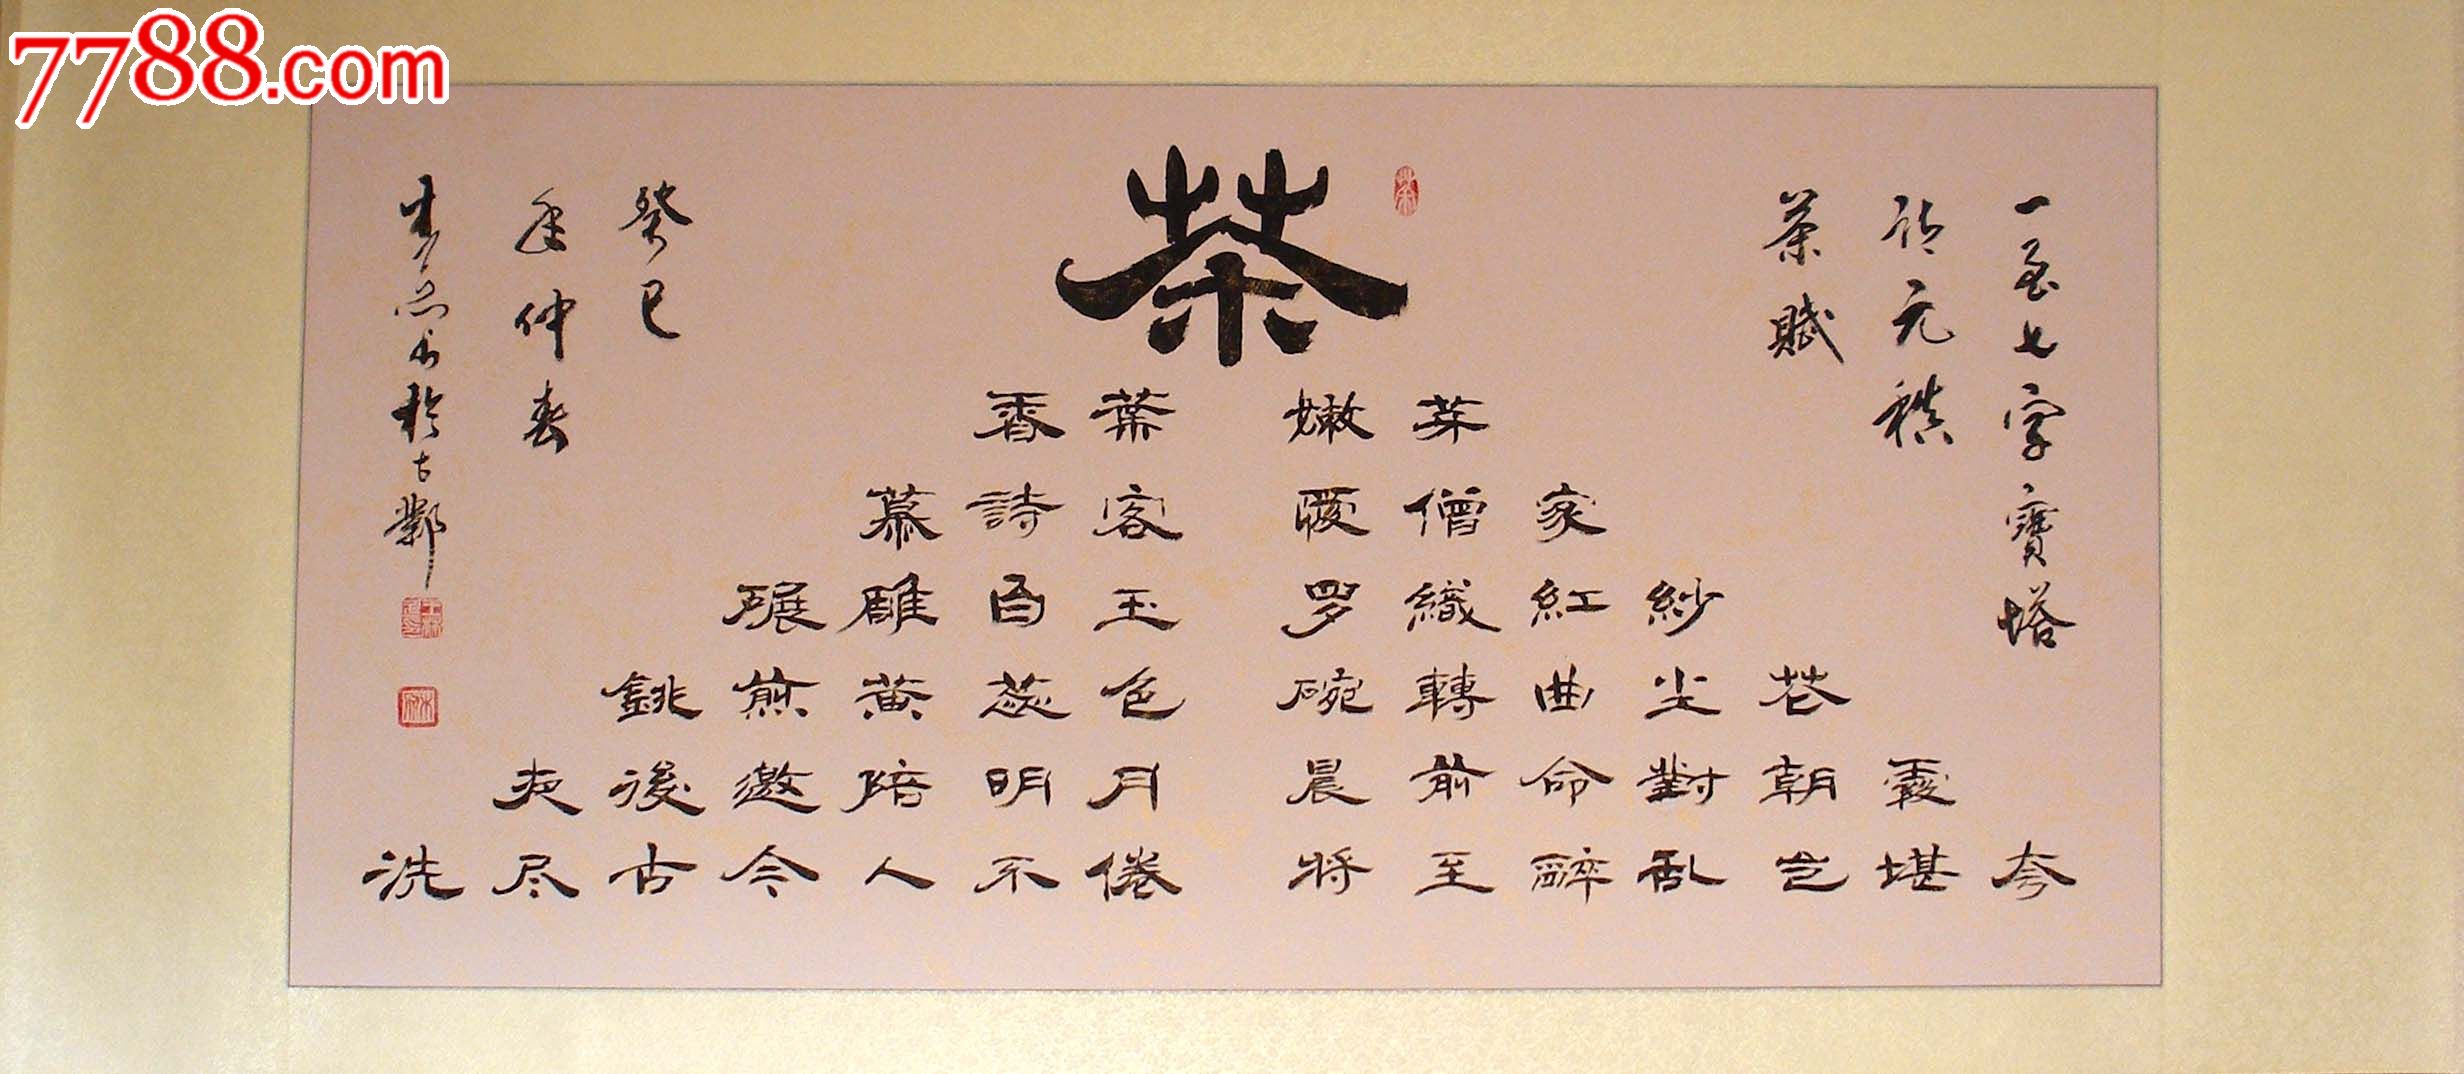 7788.com
一至七字寶塔
诗元稹
茶賦
茶
香葉 嫩芽
慕詩客 愛僧家
碾雕白玉 罗織紅紗
銚煎黄蕊色 碗轉曲尘花
夜後邀陪明月 晨前命對朝霞
洗尽古今人不倦 将至醉乱岂堪夸
癸巳
年仲春
书於古鄴